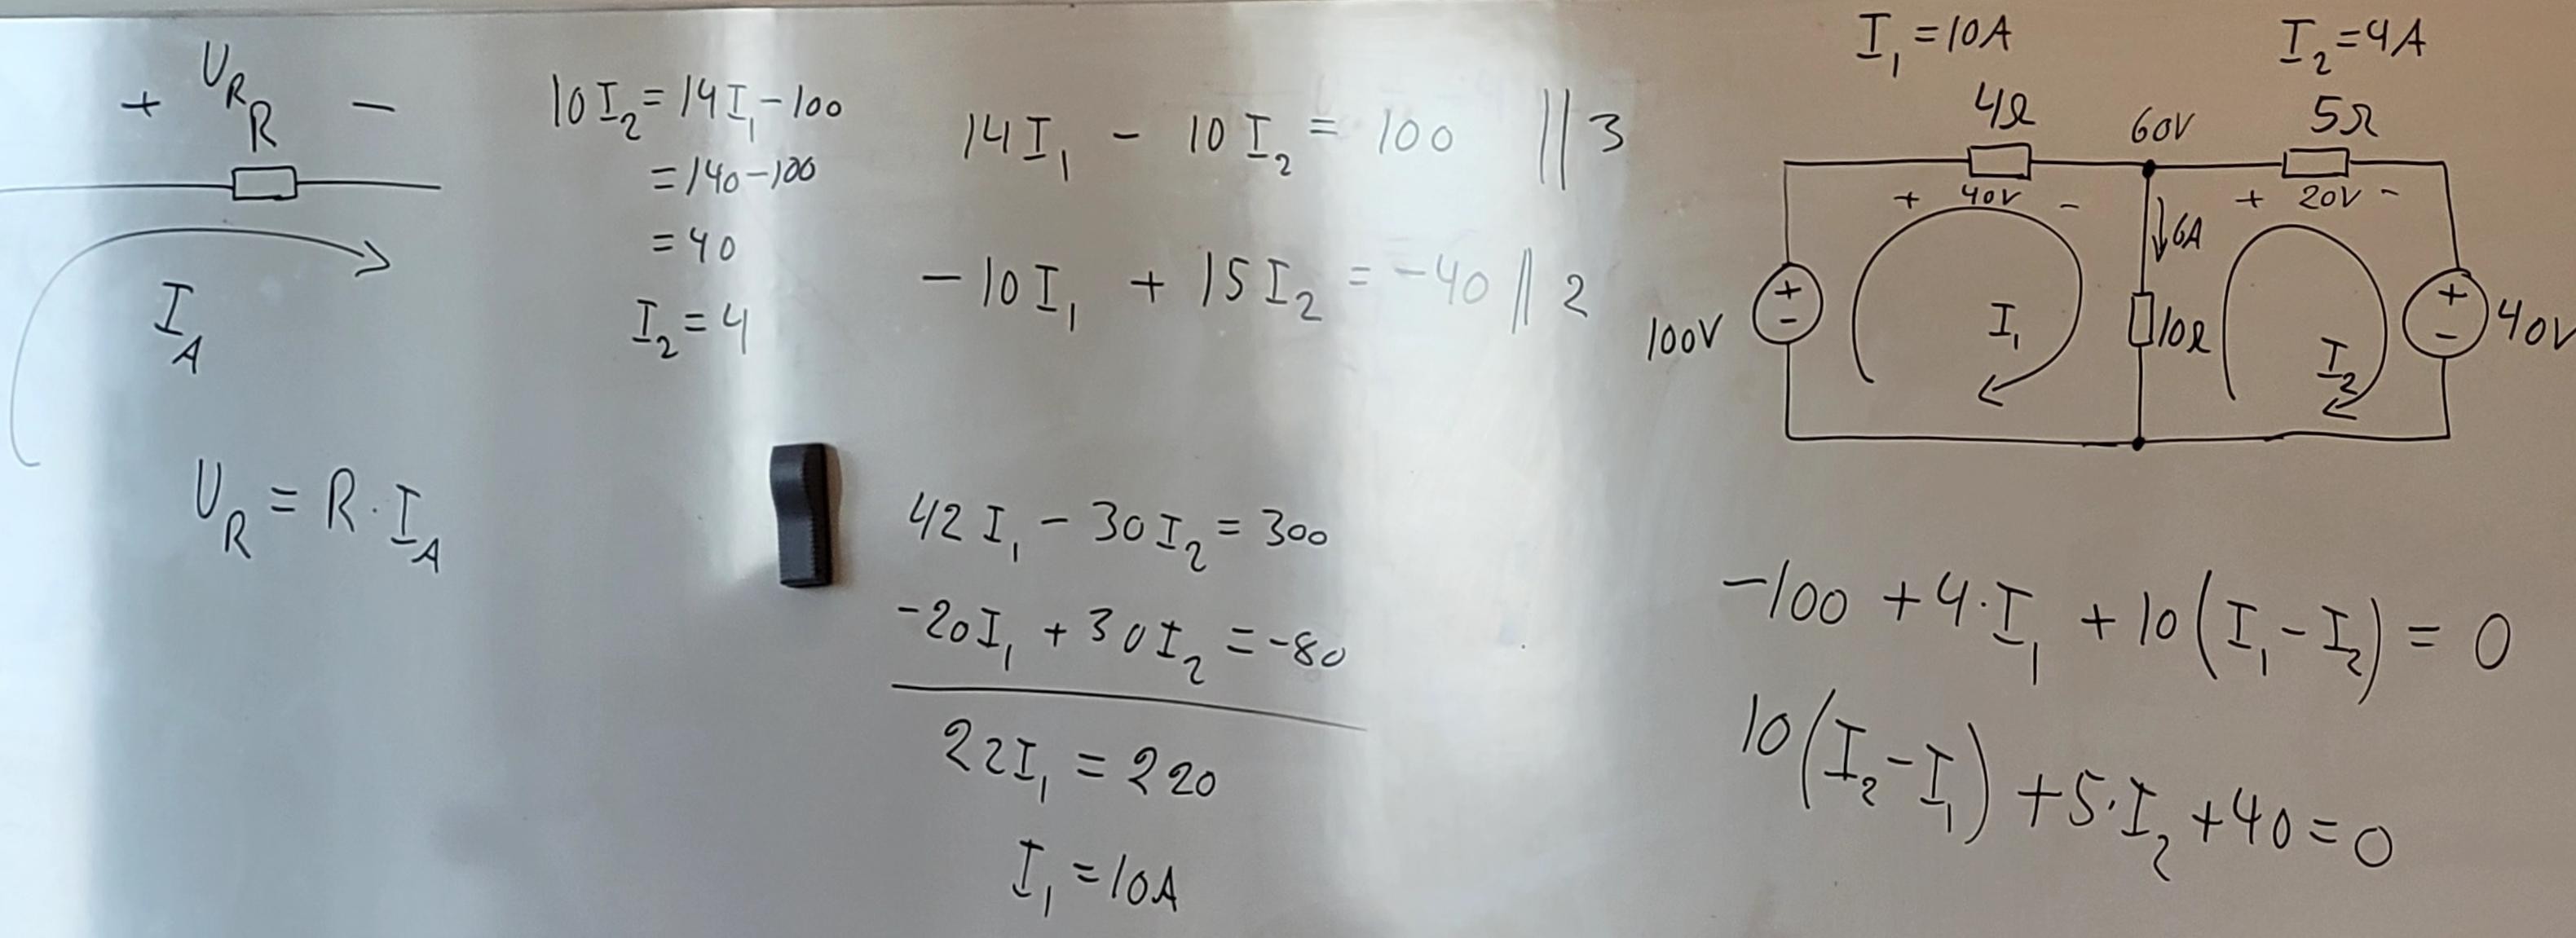 + U_R −
R
I_A
U_R = R · I_A
10 I₂ = 14 I₁ − 100
= 140 − 100
= 40
I₂ = 4
14 I₁ − 10 I₂ = 100 || 3
− 10 I₁ + 15 I₂ = −40 || 2
42 I₁ − 30 I₂ = 300
−20 I₁ + 30 I₂ = −80
22 I₁ = 220
I₁ = 10A
I₁ = 10A I₂ = 4A
4Ω 60V 5Ω
+ 40V − + 20V −
6A
+ − 100V
I₁
10Ω
I₂
+ − 40V
−100 + 4 · I₁ + 10 (I₁ − I₂) = 0
10 (I₂ − I₁) + 5 · I₂ + 40 = 0